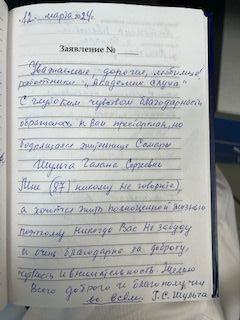 12. марта 24г.
Заявление №
Уважаемые, дорогие, любимые
работники "Академию слуха"
С глубоким чувством благодарности
обращаюсь к Вам престарелая, но
бодрящаяся жительница Самары
Шульга Галина Сергеевна
Мне (87) никому не говорите,
а хочется жить полноценной жизнью
поэтому никогда Вас не забуду
и очень благодарна за доброту,
чуткость и внимательность. Желаю
Всего доброго и благополучия
во всём Г.С. Шульга